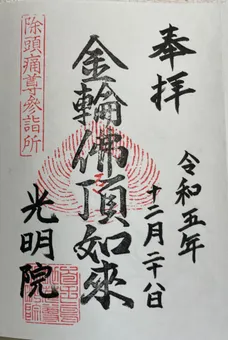 奉拝
令和五年
十二月二十八日
金輪佛頂如來
光明院
除頭痛尊參詣所